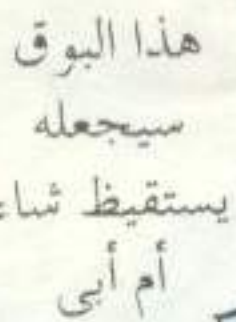 هذا البوق
سيجعله
يستقيظ شاء
أم أبى